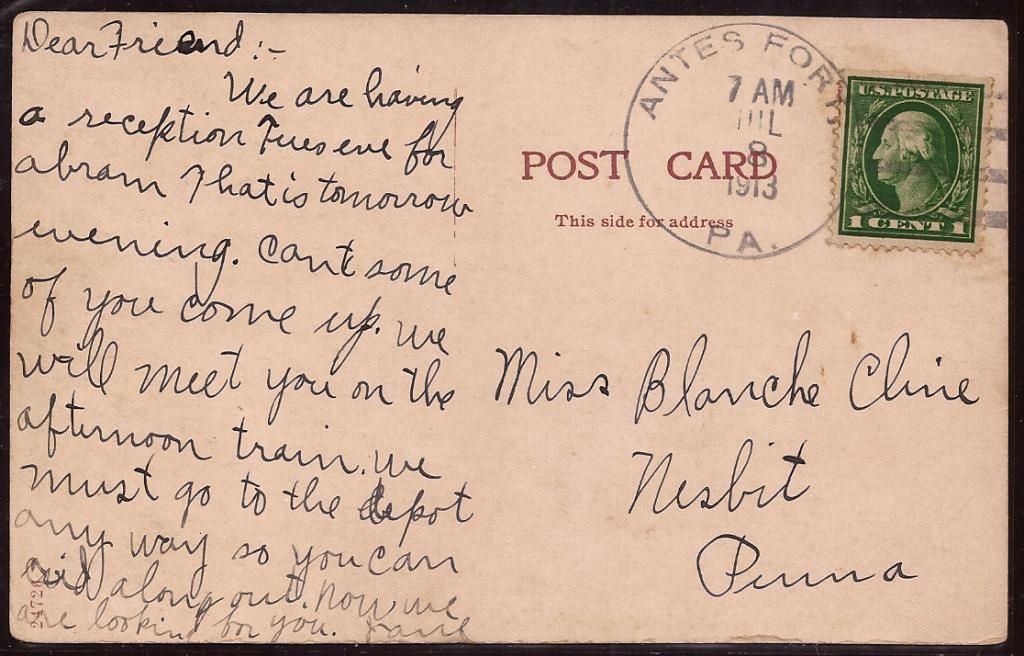 Dear Friend:-
We are having
a reception Tues eve for
abram That is tomorrow
evening. Cant some
of you come up. we
will meet you on the
afternoon train. we
must go to the depot
any way so you can
rid along out. now we
are looking for you.
24726
ANTES FORT
7 AM
JUL
8
1913
PA.
U.S. POSTAGE
1 CENT 1
POST CARD
This side for address
Miss Blanche Cline
Nesbit
Penna